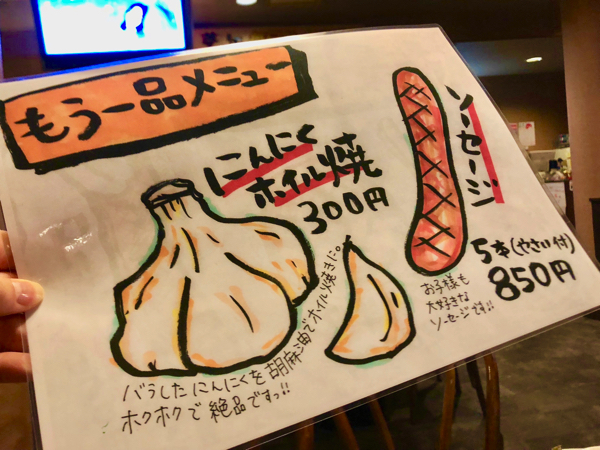 もう一品メニュー
にんにく
ホイル焼
300円
バラしたにんにくを胡麻油でホイル焼きに。
ホクホクで絶品ですっ!!
ソーセージ
5本(やさい付)
850円
お子様も
大好きな
ソーセージです!!